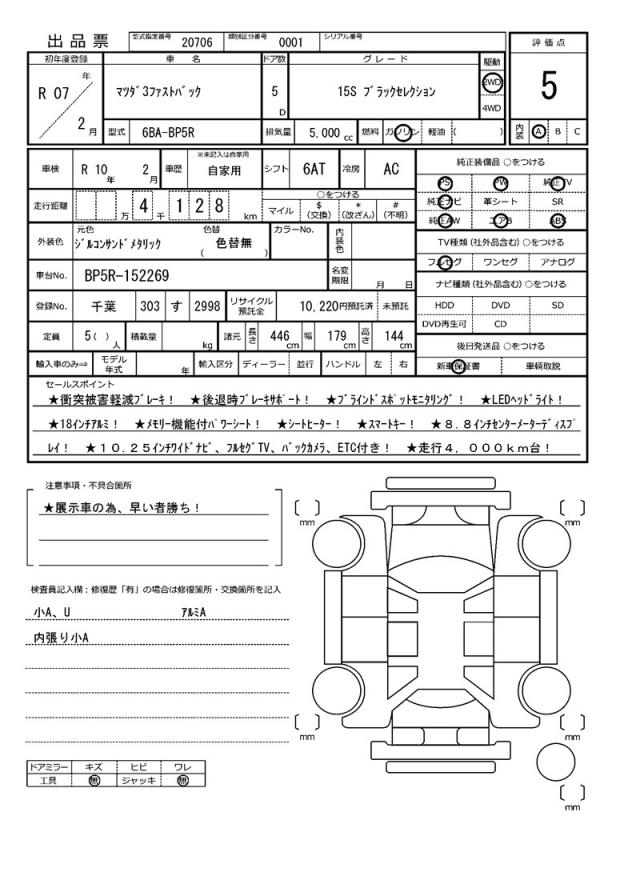 出品票 型式指定番号 20706 類別区分番号 0001 シリアル番号
評価点
5
内装 A B C
初年度登録 車名 ドア数 グレード 駆動
R 07 年 2 月 マツダ3ファストバック 5 D 15S ブラックセレクション 2WD 4WD
型式 6BA-BP5R 排気量 5,000 cc 燃料 ガソリン 軽油 ( )
車検 R 10 年 2 月 車歴 ※未記入は自家用 自家用 シフト 6AT 冷房 AC
走行距離 万 4 千 1 2 8 km
○をつける
マイル $(交換) *(改ざん) #(不明)
純正装備品 ○をつける
PS PW 純正TV
純正ナビ 革シート SR
純正AW エアB ABS
外装色 元色 ジルコンサンドメタリック 色替 ( 色替無 ) カラーNo. 内装色
TV種類 (社外品含む) ○をつける
フルセグ ワンセグ アナログ
車台No. BP5R-152269 名変期限 月 日
ナビ種類 (社外品含む) ○をつける
HDD DVD SD
DVD再生可 CD
登録No. 千葉 303 す 2998 リサイクル預託金 10,220円預託済 未預託
定員 5( ) 人 積載量 kg 諸元 長さ 446 cm 幅 179 cm 高さ 144 cm
後日発送品 ○をつける
新車保証書 車輌取説
輸入車のみ⇒ モデル年式 年 輸入区分 ディーラー 並行 ハンドル 左 右
セールスポイント
★衝突被害軽減ブレーキ! ★後退時ブレーキサポート! ★ブラインドスポットモニタリング! ★LEDヘッドライト!
★18インチアルミ! ★メモリー機能付パワーシート! ★シートヒーター! ★スマートキー! ★8.8インチセンターメーターディスプ
レイ! ★10.25インチワイドナビ、フルセグTV、バックカメラ、ETC付き! ★走行4,000km台!
注意事項・不具合箇所
★展示車の為、早い者勝ち!
検査員記入欄:修復歴「有」の場合は修復箇所・交換箇所を記入
小A、U アルミA
内張り小A
ドアミラー キズ ヒビ ワレ
工具 無 ジャッキ 無
[ ] mm
[ ] mm
[ ] mm
[ ] mm
[ ] mm